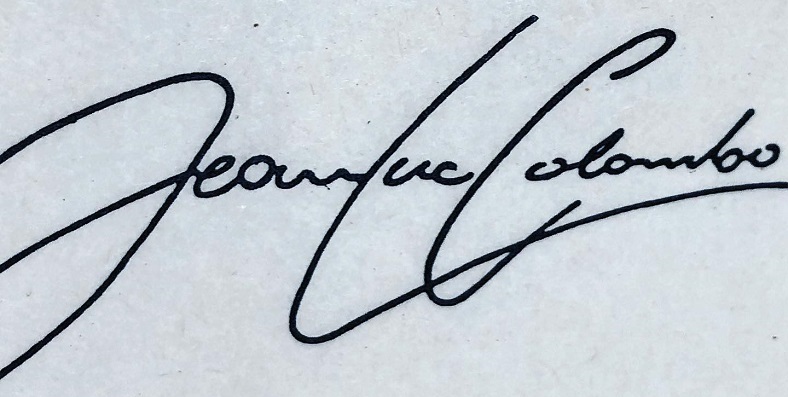 Jean Luc Colombo